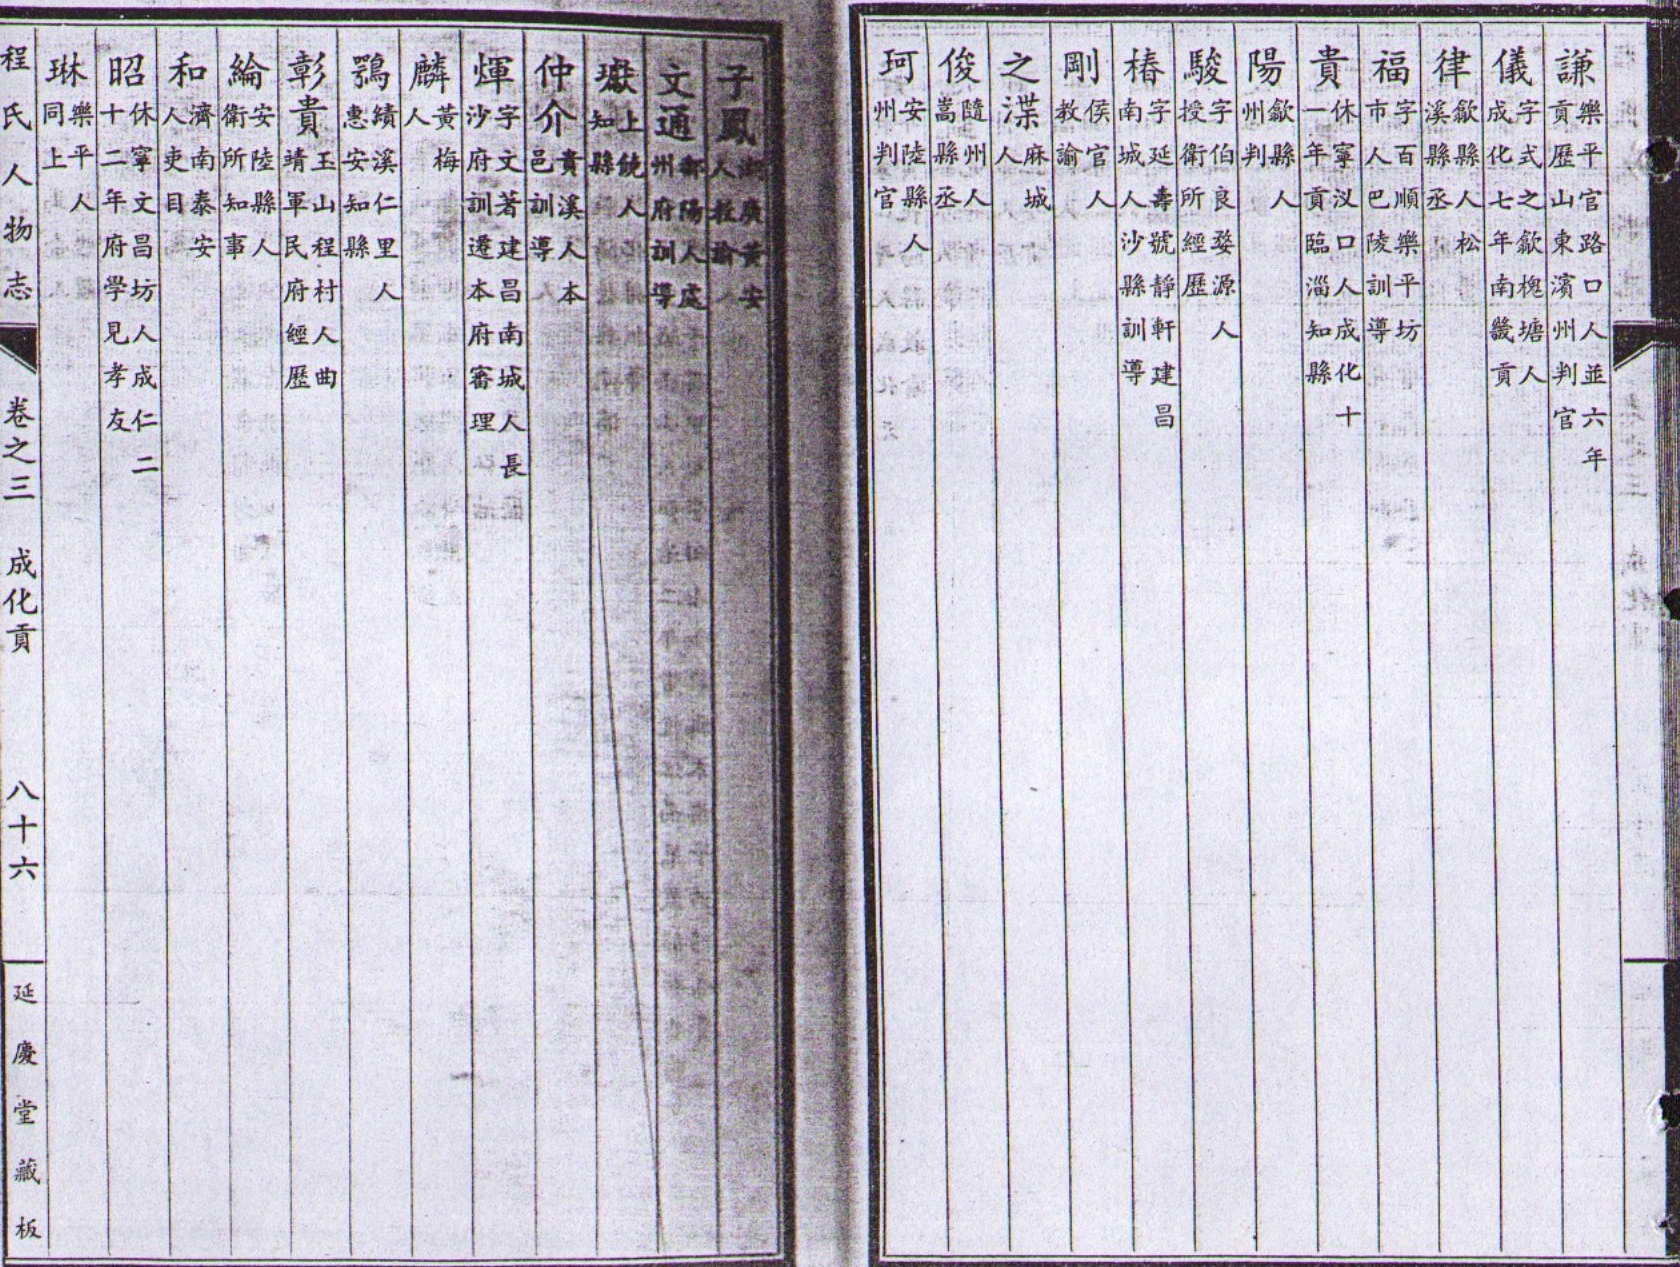 謙 樂平官路口人並六年貢歷山東濱州判官
儀 字式之歙槐塘人成化七年南畿貢
律 歙縣人松溪縣丞
福 字百順樂平坊市人巴陵訓導
貴 休寧汊口人成化十一年貢臨淄知縣
陽 歙縣人州判
駿 字伯良婺源人授衛所經歷
椿 字延壽號靜軒建昌南城人沙縣訓導
剛 侯官人教諭
之渫 麻城人
俊 隨州人嵩縣丞
珂 安陸縣人州判官
子鳳 湖廣黃安人教諭
文通 鄱陽人處州府訓導
上饒人知縣
仲介 貴溪人本邑訓導
煇 字文著建昌南城人長沙府訓遷本府審理
麟 黃梅人
鶚 績溪仁里人惠安知縣
彰貴 玉山程村人曲靖軍民府經歷
綸 安陸縣人衛所知事
和 濟南泰安人吏目
昭 休寧文昌坊人成仁二十二年府學見孝友
琳 樂平人同上
程氏人物志 卷之三 成化貢 八十六 延慶堂藏板